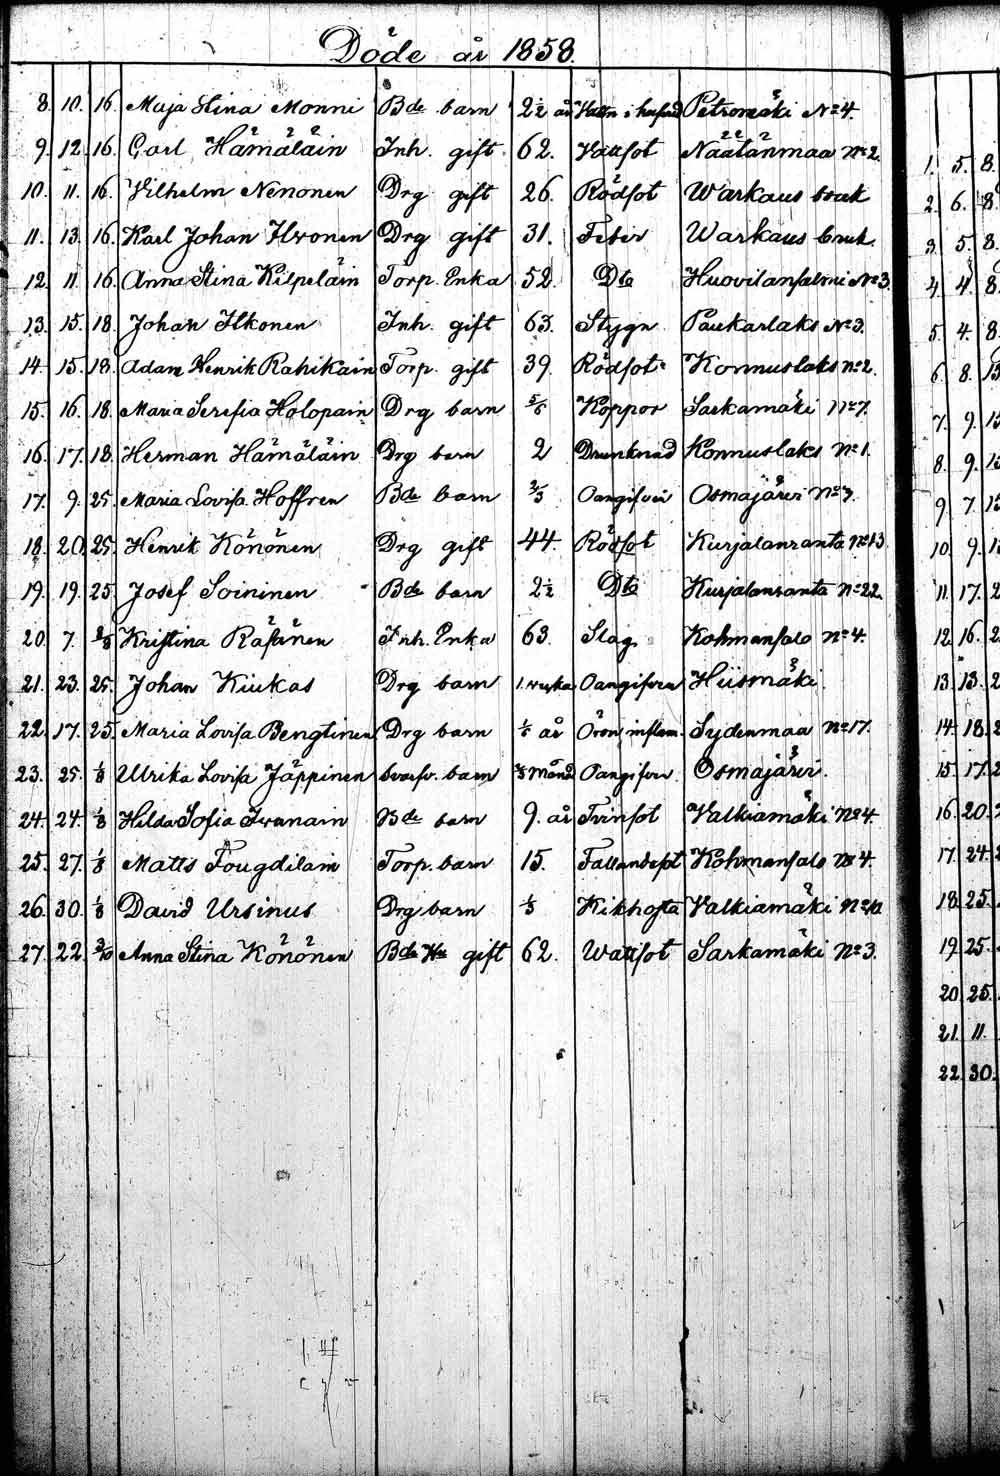 Döde år 1858.
8. 10. 16. Maja Stina Monni Bde barn 2½ år Vattn i hufvud Petromäki No 4.
9. 12. 16. Carl Hämäläin Inh. gift 62. Vattsot Näätänmaa No 2.
10. 11. 16. Vilhelm Nenonen Drg gift 26. Rödsot Warkaus bruk
11. 13. 16. Karl Johan Ihvonen Drg gift 31. Feber Warkaus bruk
12. 11. 16. Anna Stina Kilpeläin Torp. Enka 52. Dto Huovilansalmi No 3.
13. 15. 18. Johan Ilkonen Inh. gift 63. Stygn Paukarlaks No 3.
14. 15. 18. Adam Henrik Rahikain Torp. gift 39. Rödsot Konnuslaks No 2.
15. 16. 18. Maria Serefia Holopain Drg barn 5/6 Koppor Sarkamäki No 7.
16. 17. 18. Herman Hämäläin Drg barn 2 Drunknad Konnuslaks No 1.
17. 9. 25. Maria Lovisa Hoffren Bde barn 2/3 Oangifven Osmajärvi No 7.
18. 20. 25. Henrik Könönen Drg gift 44. Rödsot Kurjalanranta No 13.
19. 19. 25. Josef Soininen Bde barn 2½ Dto Kurjalanranta No 22.
20. 7. Kristina Räsänen Inh. Enka 63. Slag Kohmansalo No 4.
21. 23. 25. Johan Kiukas Drg barn 1. vecka Oangifven Hiismäki.
22. 17. 25. Maria Lovisa Bengtinen Drg barn år Öron inflam. Sydenmaa No 17.
23. 25. 1/8 Ulrika Lovisa Jäppinen barn Månd Oangifven Osmajärvi.
24. 24. 1/8 Hilda Sofia Ivanain Bde barn 9. år Tvinsot Valkiamäki No 4.
25. 27. 1/8 Matts Fougdilain Torp. barn 15. Fallandesot Kohmansalo No 4.
26. 30. 1/8 David Ursinus Drg barn 1/3 Kikhosta Valkiamäki
27. 22. 3/10 Anna Stina Könönen Bde Hu gift 62. Wattsot Sarkamäki No 3.
1. 5. 8.
2. 6. 8.
3. 5. 8.
4. 4. 8.
5. 4. 8.
6. 8.
7. 9.
8. 9.
9. 7.
10. 9.
11. 17.
12. 16.
13. 13.
14. 18.
15. 17.
16. 20.
17. 24.
18. 25.
19. 25.
20. 25.
21. 11.
22. 30.